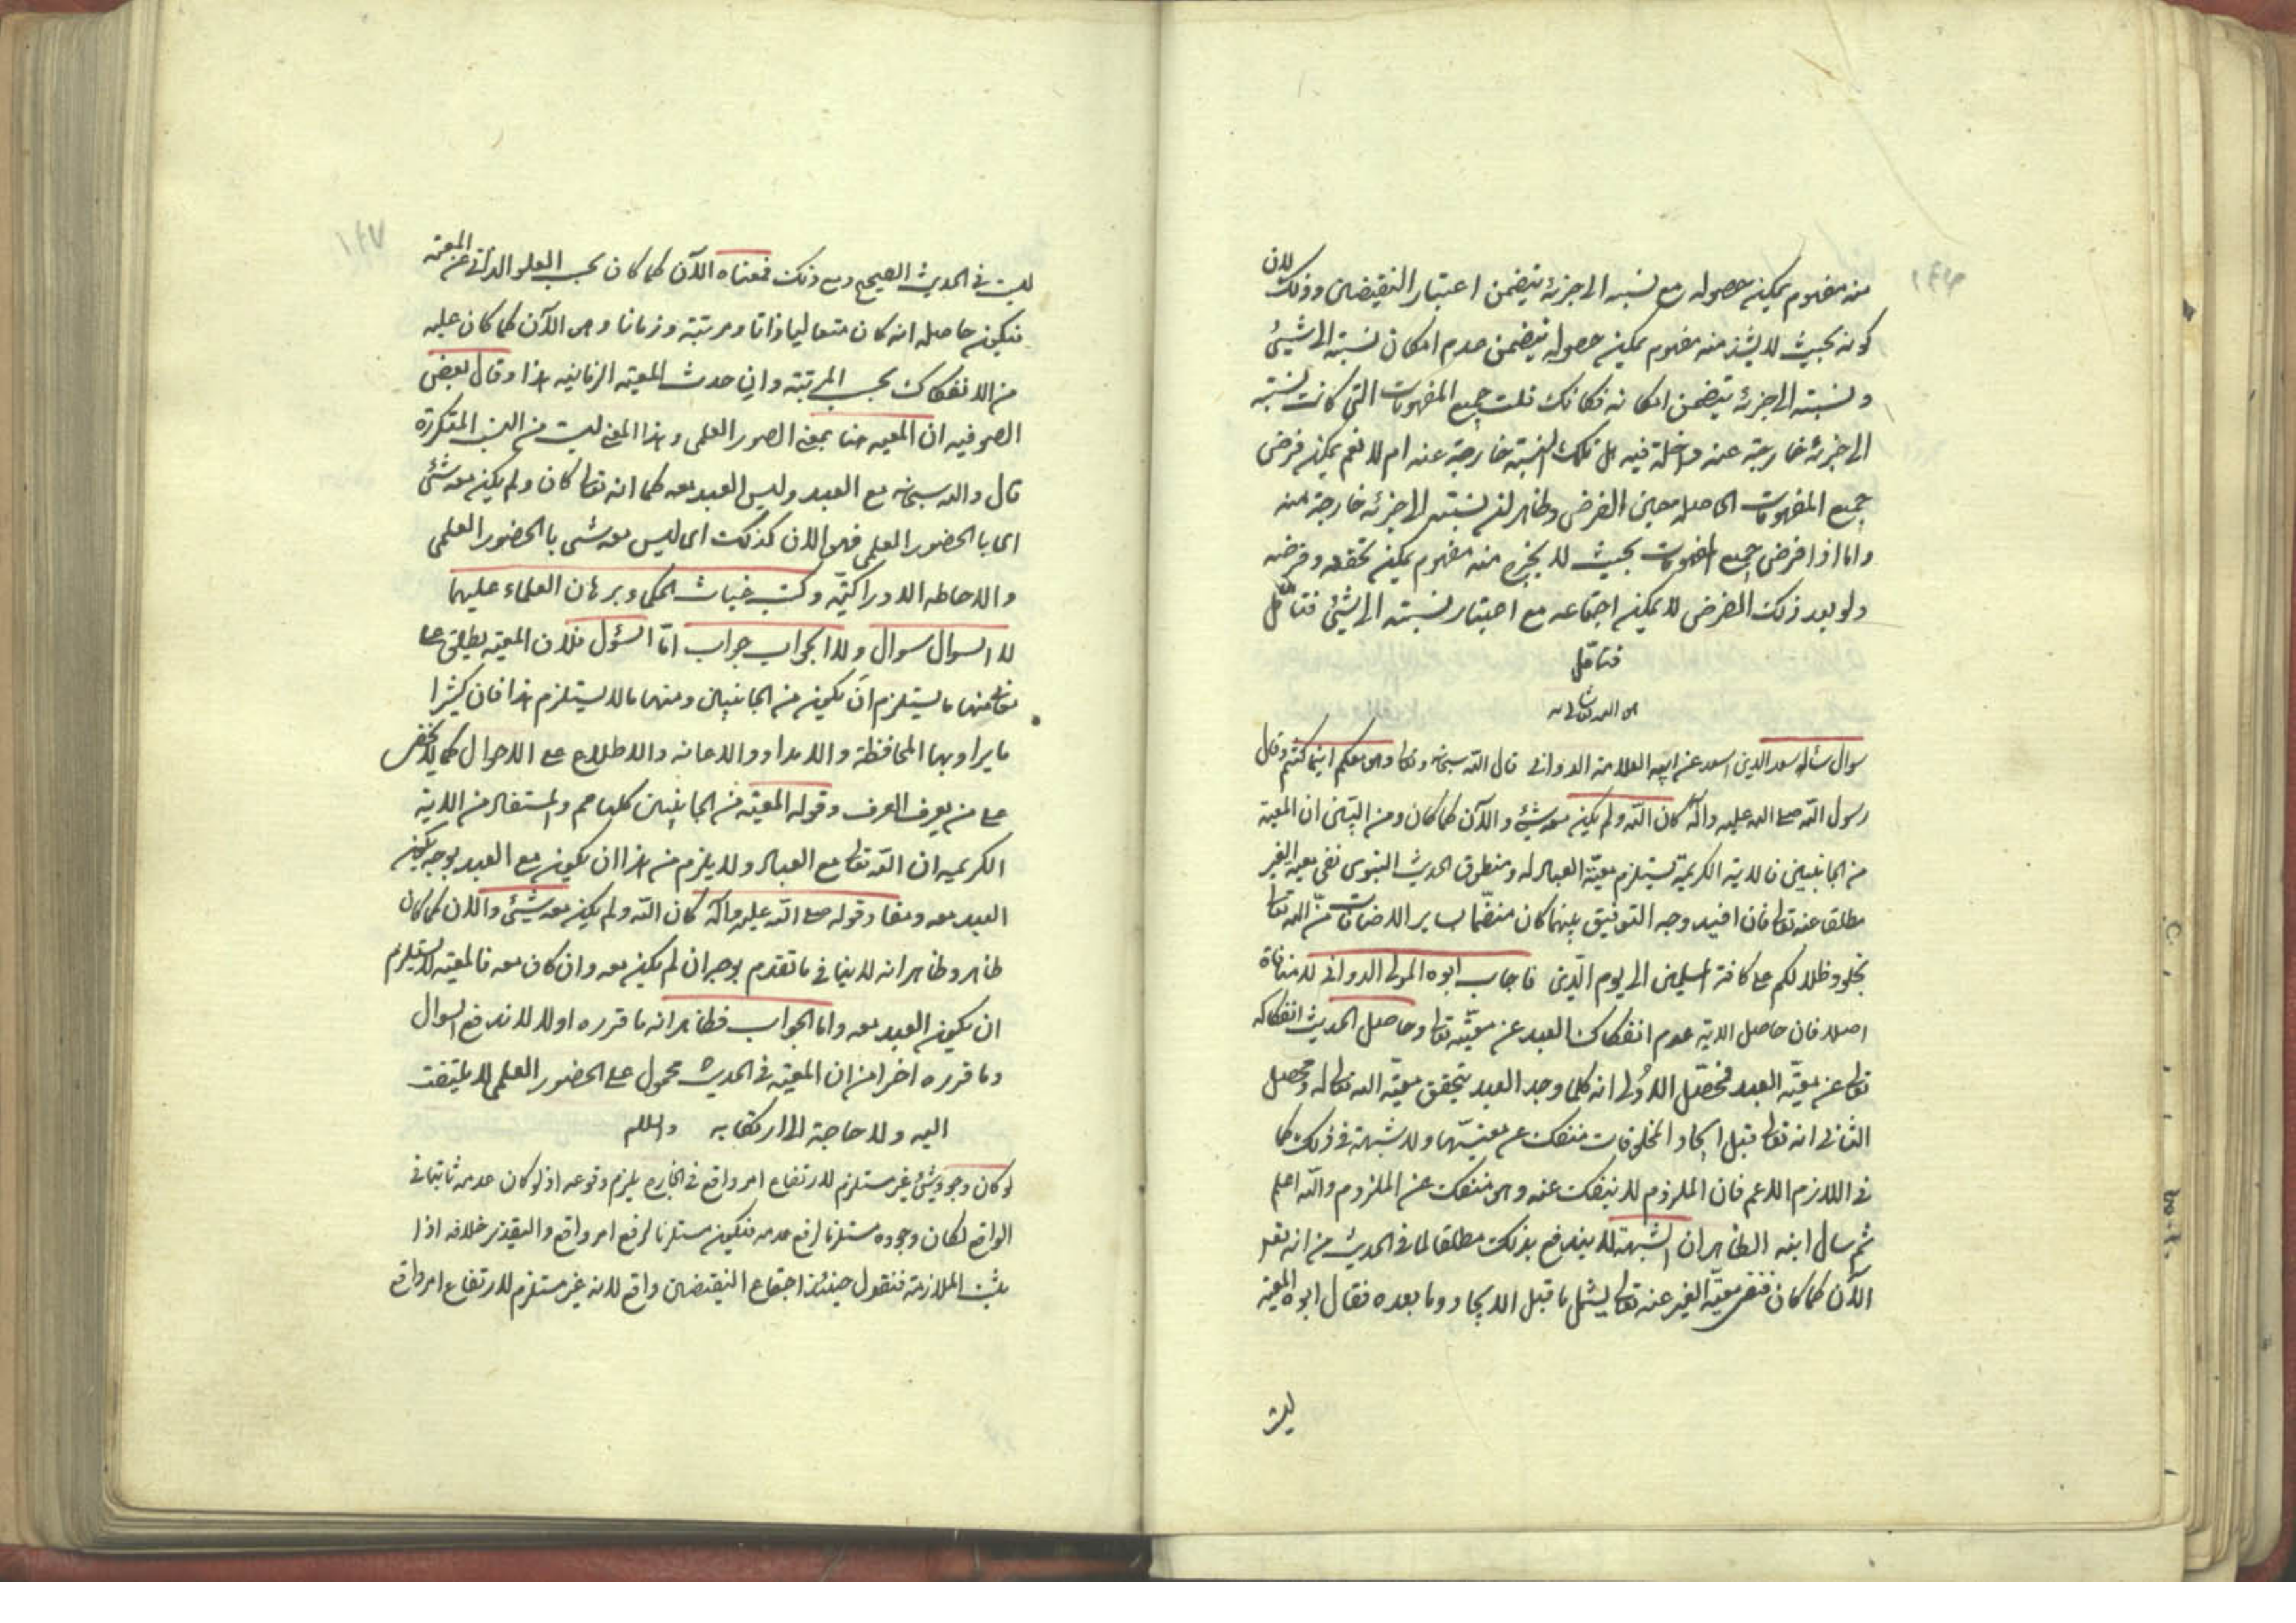 ١٤٦
منه مفهوم يمكن حصوله مع نسبته الى جزئه يتضمن اعتبار النقيضين وذلك لان
كونه بحيث لا يشذ منه مفهوم يمكن حصوله يتضمن عدم امكان نسبته الى شيئ
ونسبته الى جزئه يتضمن امكانه فكانك قلت جميع المفهومات التي كانت نسبته
الى جزئه خارجة عنه داخلة فيه هل تلك النسبة خارجة عنه ام لا نعم يمكن فرض
جميع المفهومات الحاصلة حين الفرض وظاهر ان نسبته الى جزئه خارجة منه
واما اذا فرض جميع المفهومات بحيث لا يخرج منه مفهوم يمكن تحققه وفرضه
ولو بعد ذلك الفرض لا يمكن اجتماعه مع اعتبار نسبته الى شيئ فتامّل
فتامّل
هو الله تعالى شانه
سوال سئله سعد الدين اسعد عن ابيه العلامة الدواني قال الله سبحانه وتعا وهو معكم اينما كنتم وقال
رسول الله صلى الله عليه وآله كان الله ولم يكن معه شيئ والآن كما كان ومن البيّن ان المعية
من الجانبين فالاية الكريمة تستلزم معيّة العباد له ومنطوق الحديث النبوى نفى معية الغير
مطلقا عنه تعا فان افيد وجه التوفيق بينهما كان منضمّا بساير الاضافات منّ الله تعا
بخلود ظلالكم على كافة المسلمين الى يوم الدّين فاجاب ابوه المولى الدواني لا منافاة
اصلا فان حاصل الاية عدم انفكاك العبد عن معيّته تعا وحاصل الحديث انفكاكه
تعا عن معيّة العبد فمحصّل الاولى انه كلما وجد العبد يتحقق معيّة الله تعا له ومحصل
الثاني انه تعا قبل ايجاد المخلوقات منفك عن معيّتها ولا شبهة في ذلك كما
في اللازم الاعم فان الملزوم لا ينفك عنه وهو منفك عن الملزوم والله اعلم
ثم سال ابنه الظاهر ان الشبهة لا يندفع بذلك مطلقا لما في الحديث من انه تعا
الآن كما كان فنفى معيّة الغير عنه تعا يشمل ما قبل الايجاد وما بعده فقال ابوه المعيّة
ليست
١٤٧
ليست في الحديث الصحيح ومع ذلك فمعناه الآن كما كان بحسب العلو الذاتى عن المعيّة
فيكون حاصله انه كان متعاليا ذاتا ومرتبة وزمانا وهو الآن كما كان عليه
من الانفكاك بحسب المرتبة وان حدث المعية الزمانية هذا وقال بعض
الصوفيه ان المعيه هنا بمعنى الصور العلمى وهذا المعنى ليست من النسب المتكررة
قال والله سبحانه مع العبد وليس العبد معه كما انه تعا كان ولم يكن معه شئ
اى بالحضور العلمى فهو الان كذلك اى ليس معه شى بالحضور العلمى
والاحاطه الادراكيّة وكتب غياث الحكما وبرهان العلماء عليهما
لا السوال سوال ولا الجواب جواب امّا السؤل فلان المعية يطلق على
معان منها ما يستلزم ان يكون من الجانبين ومنها ما لا يستلزم هذا فان كثيرا
ما يراد بها المحافظة والامداد والاعانه والاطلاع على الاحوال كما لا يخفى
على من يعرف العرف وقوله المعيّة من الجانبين كلها مم والمستفاد من الاية
الكريمه ان الله تعا مع العباد ولا يلزم من هذا ان يكون مع العبد بوجه يكون
العبد معه ومفاد قوله صلى الله عليه وآله كان الله ولم يكن معه شيئ والان كما كان
ظاهر وظاهر انه لا ينافى ما تقدم بوجه ان لم يكن معه وان كان معه فالمعيّة لا يستلزم
ان يكون العبد معه واما الجواب فظاهر انه ما قرره اولا لا يدفع السوال
وما قرره اخرا من ان المعيّة في الحديث محمول على الحضور العلمى لا يلتفت
اليه ولا حاجة الى ارتكابه والسلم
لو كان وجود شيئ غير مستلزم لارتفاع امر واقع في الخارج يلزم وقوعه اذ لو كان عدمه ثابتا في
الواقع لكان وجوده مستلزما لرفع عدمه فيكون مستلزما لرفع امر واقع والتقدير خلافه اذا
ثبت الملازمة فنقول حينئذ اجتماع النقيضين واقع لانه غير مستلزم لارتفاع امر واقع